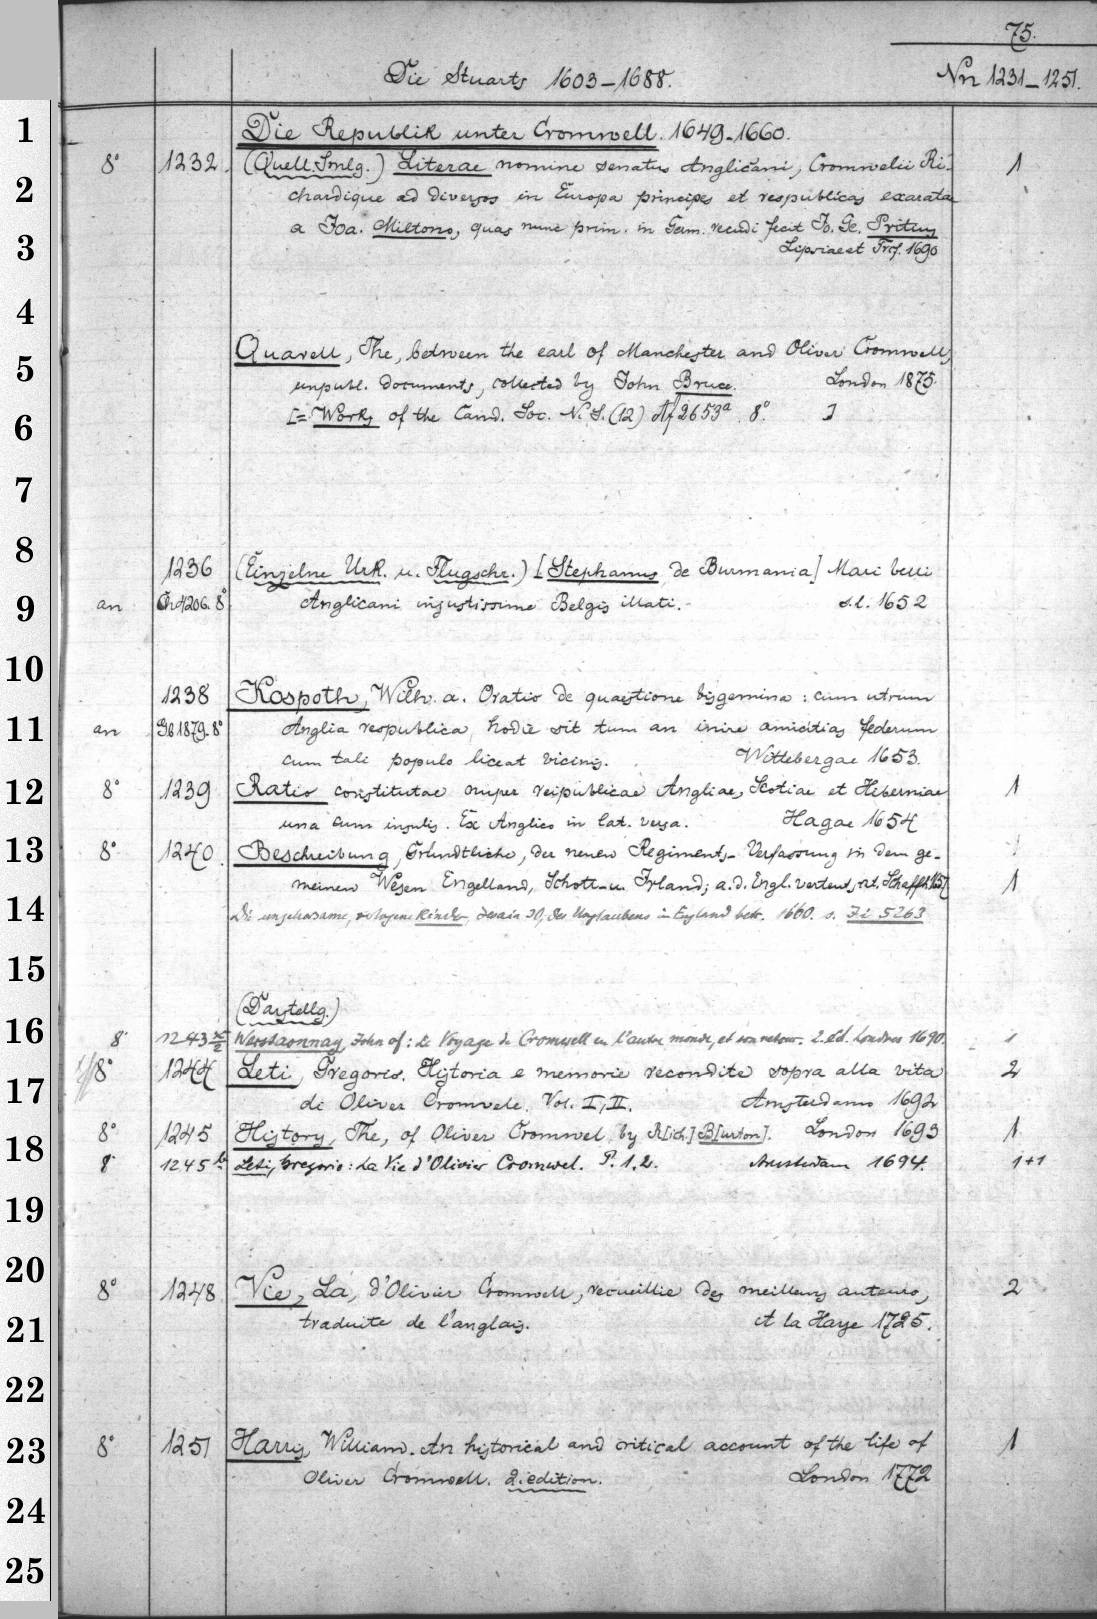 75.
Die Stuarts 1603-1688. Nn 1231-1251.
1 Die Republik unter Cromwell. 1649-1660.
8° 1232. (Quell. Smlg.) Literae nomine senatus Anglicani, Cromwelii Ri- 1
2 chardique ad diversos in Europa principes et respublicas exaratae
3 a Joa. Miltono, quas nunc prim. in Germ. recudi fecit Jo. Ge. Pritius
Lipsiae et Frcf. 1690
4
Quarrell, The, between the earl of Manchester and Oliver Cromwell,
5 unpubl. documents, collected by John Bruce. London 1875.
6 [= Works of the Camd. Soc. N. S. (12) Af 2653a. 8°. ]
7
8 1236 (Einzelne Urk. u. Flugschr.) [Stephanus de Burmania] Mari belli
9 an 206. 8° Anglicani injustissime Belgis illati. s.l. 1652
10
1238 Kospoth, Wilh. a. Oratio de quaestione bisgemina: cum utrum
11 an 1879. 8° Anglia respublica hodie sit tum an inire amicitias federum
cum tali populo liceat vicinis. Wittebergae 1653.
12 8° 1239 Ratio constitutae nuper reipublicae Angliae, Scotiae et Hiberniae 1
una cum insulis. Ex Anglico in lat. versa. Hagae 1654
13 8° 1240. Beschreibung, Gründtliche, der neuen Regiments-Verfassung in dem ge-
meinen Wesen Engelland, Schott- u. Irland; a. d. Engl. verteutscht. Schaffh. 1657 1
14 Die ungehorsame, Kinder, des Unglaubens in England betr. 1660. s. Fi 5263
15
(Darstellg.)
16 8° 1243 John of: Le Voyage de Cromwell en l'autre monde, et son retour. 2. ed. Londres 1690. 1
17 8° 1244 Leti, Gregorio. Historia e memorie recondite sopra alla vita 2
di Oliver Cromvele. Vol. I, II. Amsterdamo 1692
18 8° 1245 History, The, of Oliver Cromwel, by R[ich.] B[urton]. London 1693 1
8° 1245b Leti, Gregorio: La Vie d'Olivier Cromwel. P. 1.2. Amsterdam 1694. 1+1
19
20 8° 1248 Vie, La, d'Olivier Cromwell, recueillie des meilleurs auteurs, 2
21 traduite de l'anglais. A la Haye 1725.
22
23 8° 1251 Harris, William. An historical and critical account of the life of 1
Oliver Cromwell. 2. edition. London 1772
24
25